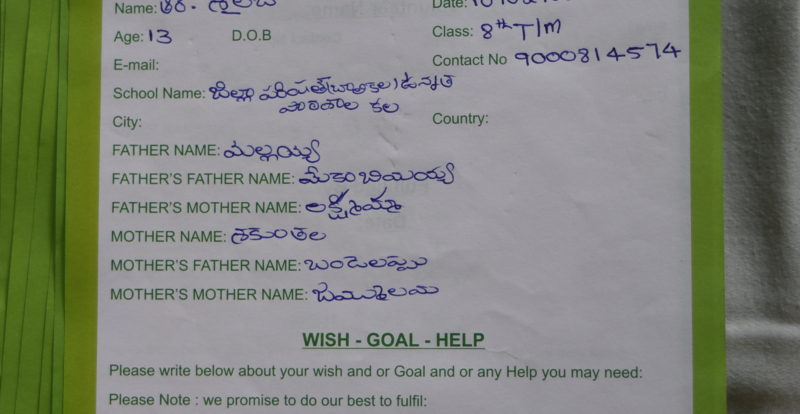 Name: శైలజ Date:
Age: 13 D.O.B Class: 8th T/M
E-mail: Contact No 9000814574
School Name: జిల్లా పరిషత్ (బాలికల) ఉన్నత
పాఠశాల
City: Country:
FATHER NAME: మల్లయ్య
FATHER'S FATHER NAME:
FATHER'S MOTHER NAME:
MOTHER NAME: శకుంతల
MOTHER'S FATHER NAME:
MOTHER'S MOTHER NAME:
WISH - GOAL - HELP
Please write below about your wish and or Goal and or any Help you may need:
Please Note : we promise to do our best to fulfil: